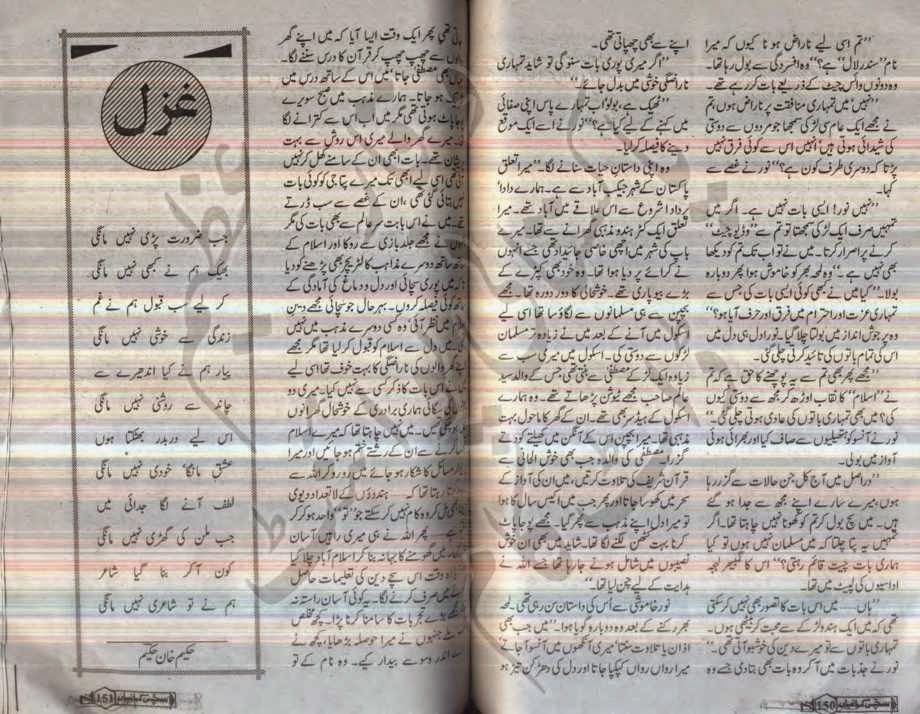 "تم اسی لیے ناراض ہو نا کیوں کہ میرا
نام "سندر لال" ہے؟" وہ افسردگی سے بول رہا تھا۔
وہ دونوں وائس چیٹ کے ذریعے بات کر رہے تھے۔
"نہیں! میں تمہاری منافقت پر ناراض ہوں، تم
نے مجھے ایک عام سی لڑکی سمجھا جو مردوں سے دوستی
کی شیدائی ہوتی ہیں! انہیں اس سے کوئی فرق نہیں
پڑتا کہ دوسری طرف کون ہے؟" نور نے غصے سے
کہا۔
"نہیں نور! ایسی بات نہیں ہے۔ اگر میں
تمہیں صرف ایک لڑکی سمجھتا تو تم سے "وڈیو چیٹ"
کرنے پر اصرار کرتا۔ میں نے تو اب تک تم کو دیکھا
بھی نہیں ہے۔" وہ لمحہ بھر کو خاموش ہوا پھر دوبارہ
بولا۔ "کیا میں نے کبھی کوئی ایسی بات کی جس سے
تمہاری عزت اور احترام میں فرق اور حرف آیا ہو؟"
وہ پر جوش انداز میں بولتا چلا گیا۔ نور دل ہی دل میں
اس کی تمام باتوں کی تائید کرتی چلی گئی۔
"مجھے پھر بھی تم سے یہ پوچھنے کا حق ہے کہ تم
نے "اسلام" کا نقاب اوڑھ کر مجھ سے دوستی کیوں
کی؟ میں بھی تمہاری باتوں کی عادی ہوتی چلی گئی۔"
نور نے آنسو کو ہتھیلیوں سے صاف کیا اور بھرائی ہوئی
آواز میں بولی۔
"دراصل میں آج کل جن حالات سے گزر رہا
ہوں، میرے سارے اپنے مجھ سے جدا ہو گئے
ہیں۔ میں سچ بول کر تم کو کھونا نہیں چاہتا تھا۔ اگر
تمہیں یہ پتا چلتا کہ میں مسلمان نہیں ہوں تو کیا
ہماری بات چیت قائم رہتی؟" اس کا گمبھیر لہجہ
اداسیوں کی لپیٹ میں تھا۔
"ہاں میں اس بات کا تصور بھی نہیں کر سکتی
تھی کہ میں ایک ہندو لڑکے سے محبت کر بیٹھی ہوں۔
تمہاری باتوں سے تو میرے دین کی خوشبو آتی تھی۔"
نور نے جذبات میں آ کر وہ بات بھی بتا دی جسے وہ
اپنے سے بھی چھپاتی تھی۔
"اگر میری پوری بات سنو گی تو شاید تمہاری
ناراضگی خوشی میں بدل جائے۔"
"ٹھیک ہے، بولو اب تمہارے پاس اپنی صفائی
میں کہنے کے لیے کیا ہے؟" نور نے اسے ایک موقع
دینے کا فیصلہ کر لیا۔
وہ اپنی داستانِ حیات سنانے لگا۔ "میرا تعلق
پاکستان کے شہر جیکب آباد سے ہے۔ ہمارے دادا
پردادا شروع سے اس علاقے میں آباد تھے۔ میرا
تعلق ایک کٹر ہندو مذہبی گھرانے سے تھا۔ میرے
باپ کی شہر میں اچھی خاصی جائیداد تھی جسے انہوں
نے کرائے پر دیا ہوا تھا۔ وہ خود بھی کپڑے کے
بڑے بیوپاری تھے۔ خوشحالی کا دور دورہ تھا۔ مجھے
بچپن سے ہی مسلمانوں سے لگاؤ سا تھا اسی لیے
اسکول میں آنے کے بعد میں نے زیادہ تر مسلمان
لڑکوں سے دوستی کی۔ اسکول میں میری سب سے
زیادہ ایک لڑکے مصطفیٰ سے بنتی تھی جس کے والد سید
عالم صاحب مجھے ٹیوشن پڑھاتے تھے۔ وہ ہمارے
اسکول کے ہیڈ سر بھی تھے۔ ان کے گھر کا ماحول بہت
مذہبی تھا۔ میرا بچپن اس کے آنگن میں کھیلتے کودتے
گزرا۔ مصطفیٰ کی والدہ جب بھی خوش الحانی سے
قرآن شریف کی تلاوت کرتیں، میں ان کی آواز کے
سحر میں کھو سا جاتا اور پھر جب میں اکیس سال کا ہوا
تو میرا دل اپنے مذہب سے پھر گیا۔ مجھے پوجا پاٹ
کرنا بہت کٹھن لگنے لگا تھا۔ شاید میں بھی ان خوش
نصیبوں میں شامل ہونے جا رہا تھا جسے اللہ نے
ہدایت کے لیے چن لیا تھا۔"
نور خاموشی سے اُس کی داستان سن رہی تھی۔ لمحہ
بھر رکنے کے بعد وہ دوبارہ گویا ہوا۔ "میں جب بھی
اذان یا تلاوت سنتا! میری آنکھوں میں آنسو آ جاتے
میرا رواں رواں کپکپا جاتا اور دل کی دھڑکن تیز ہو
150
تھی پھر ایک وقت ایسا آیا کہ میں اپنے گھر
سے چھپ چھپ کر قرآن کا درس سننے لگا۔
بھی مصطفیٰ جاتا میں اس کے ساتھ درس میں
ہو جاتا۔ ہمارے مذہب میں صبح سویرے
پاٹ ہوتی تھی مگر میں اب اس سے کترانے لگا
میرے گھر والے میری اس روش سے بہت
تھے۔ بات ابھی ان کے سامنے کھل کر نہیں
تھی اسی لیے ابھی تک میرے پتا جی کو کوئی بات
بتائی گئی تھی، ان کے غصے سے سب ڈرتے
میں نے اس بابت سر عالم سے بھی بات کی مگر
نے مجھے جلد بازی سے روکا اور اسلام کے
ساتھ دوسرے مذاہب کا لٹریچر بھی پڑھنے کو دیا
میں پوری سچائی اور دل و دماغ کی آمادگی کے
کوئی فیصلہ کروں۔ بہر حال جو سچائی مجھے دین
میں نظر آئی وہ کسی دوسرے مذہب میں نہیں
میں دل سے اسلام کو قبول کر لیا تھا مگر مجھے
والوں کی ناراضگی کا بہت خوف تھا اسی لیے
نے اس بات کا ذکر کسی سے نہیں کیا۔ میری دو
کی سگائی ہماری برادری کے خوشحال گھرانوں
میں نہیں چاہتا تھا کہ میرے اسلام
کرنے سے ان کے رشتے ختم ہو جائیں اور میرا
مسائل کا شکار ہو جائے میں رو رو کر اللہ سے
رہتا تھا کہ ہندوؤں کے لاتعداد دیوی
مل کر وہ کام نہیں کر سکتے جو "تو" واحد ہو کر کر
پھر اللہ نے ہی میری راہیں آسان
میں گھومنے کا بہانہ بنا کر اسلام آباد چلا گیا
وقت اس سچے دین کی تعلیمات حاصل
میں صرف کرنے لگا۔ یہ کوئی آسان راستہ نہ
بڑے تجربات کا سامنا کرنا پڑا۔ کچھ مخلص
جنہوں نے میرا حوصلہ بڑھایا، کچھ نے
اندر وسوسے بیدار کیے۔ وہ نام کے تو
غزل
جب ضرورت پڑی نہیں مانگی
بھیک ہم نے کبھی نہیں مانگی
کر لیے سب قبول ہم نے غم
زندگی سے خوشی نہیں مانگی
پیار ہم نے کیا اندھیرے سے
چاند سے روشنی نہیں مانگی
اس لیے دربدر بھٹکتا ہوں
عشق مانگا خودی نہیں مانگی
لطف آنے لگا جدائی میں
جب ملن کی گھڑی نہیں مانگی
کون آ کر بنا گیا شاعر
ہم نے تو شاعری نہیں مانگی
حکیم خان حکیم
151